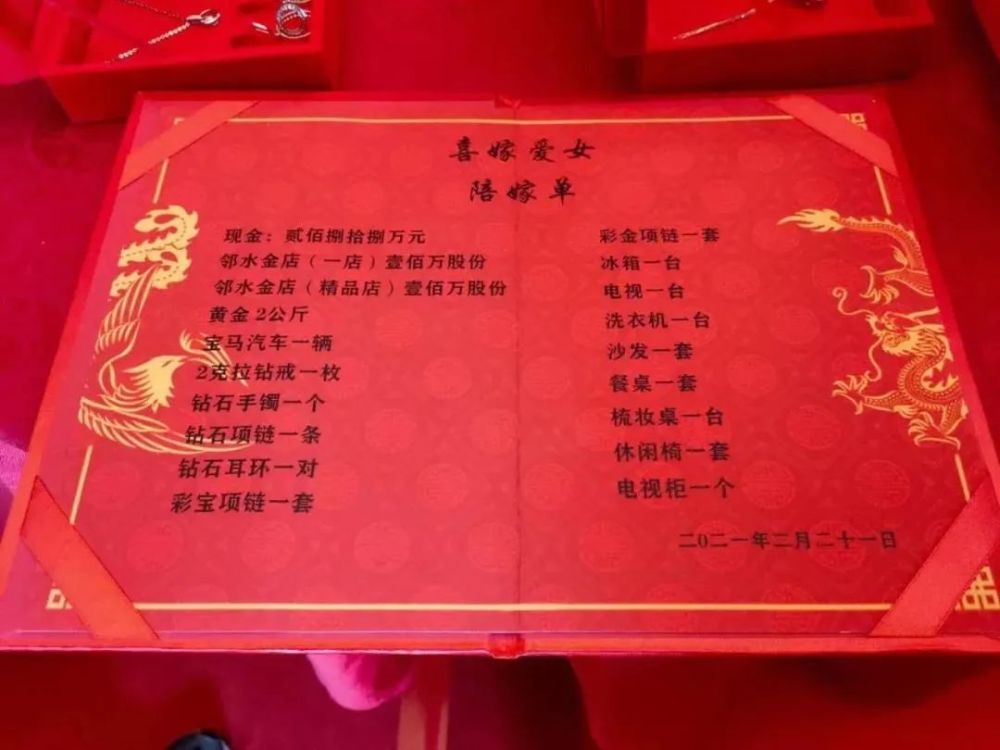 喜嫁爱女
陪嫁单
现金：贰佰捌拾捌万元
邻水金店（一店）壹佰万股份
邻水金店（精品店）壹佰万股份
黄金2公斤
宝马汽车一辆
2克拉钻戒一枚
钻石手镯一个
钻石项链一条
钻石耳环一对
彩宝项链一套
彩金项链一套
冰箱一台
电视一台
洗衣机一台
沙发一套
餐桌一套
梳妆桌一台
休闲椅一套
电视柜一个
二〇二一年二月二十一日